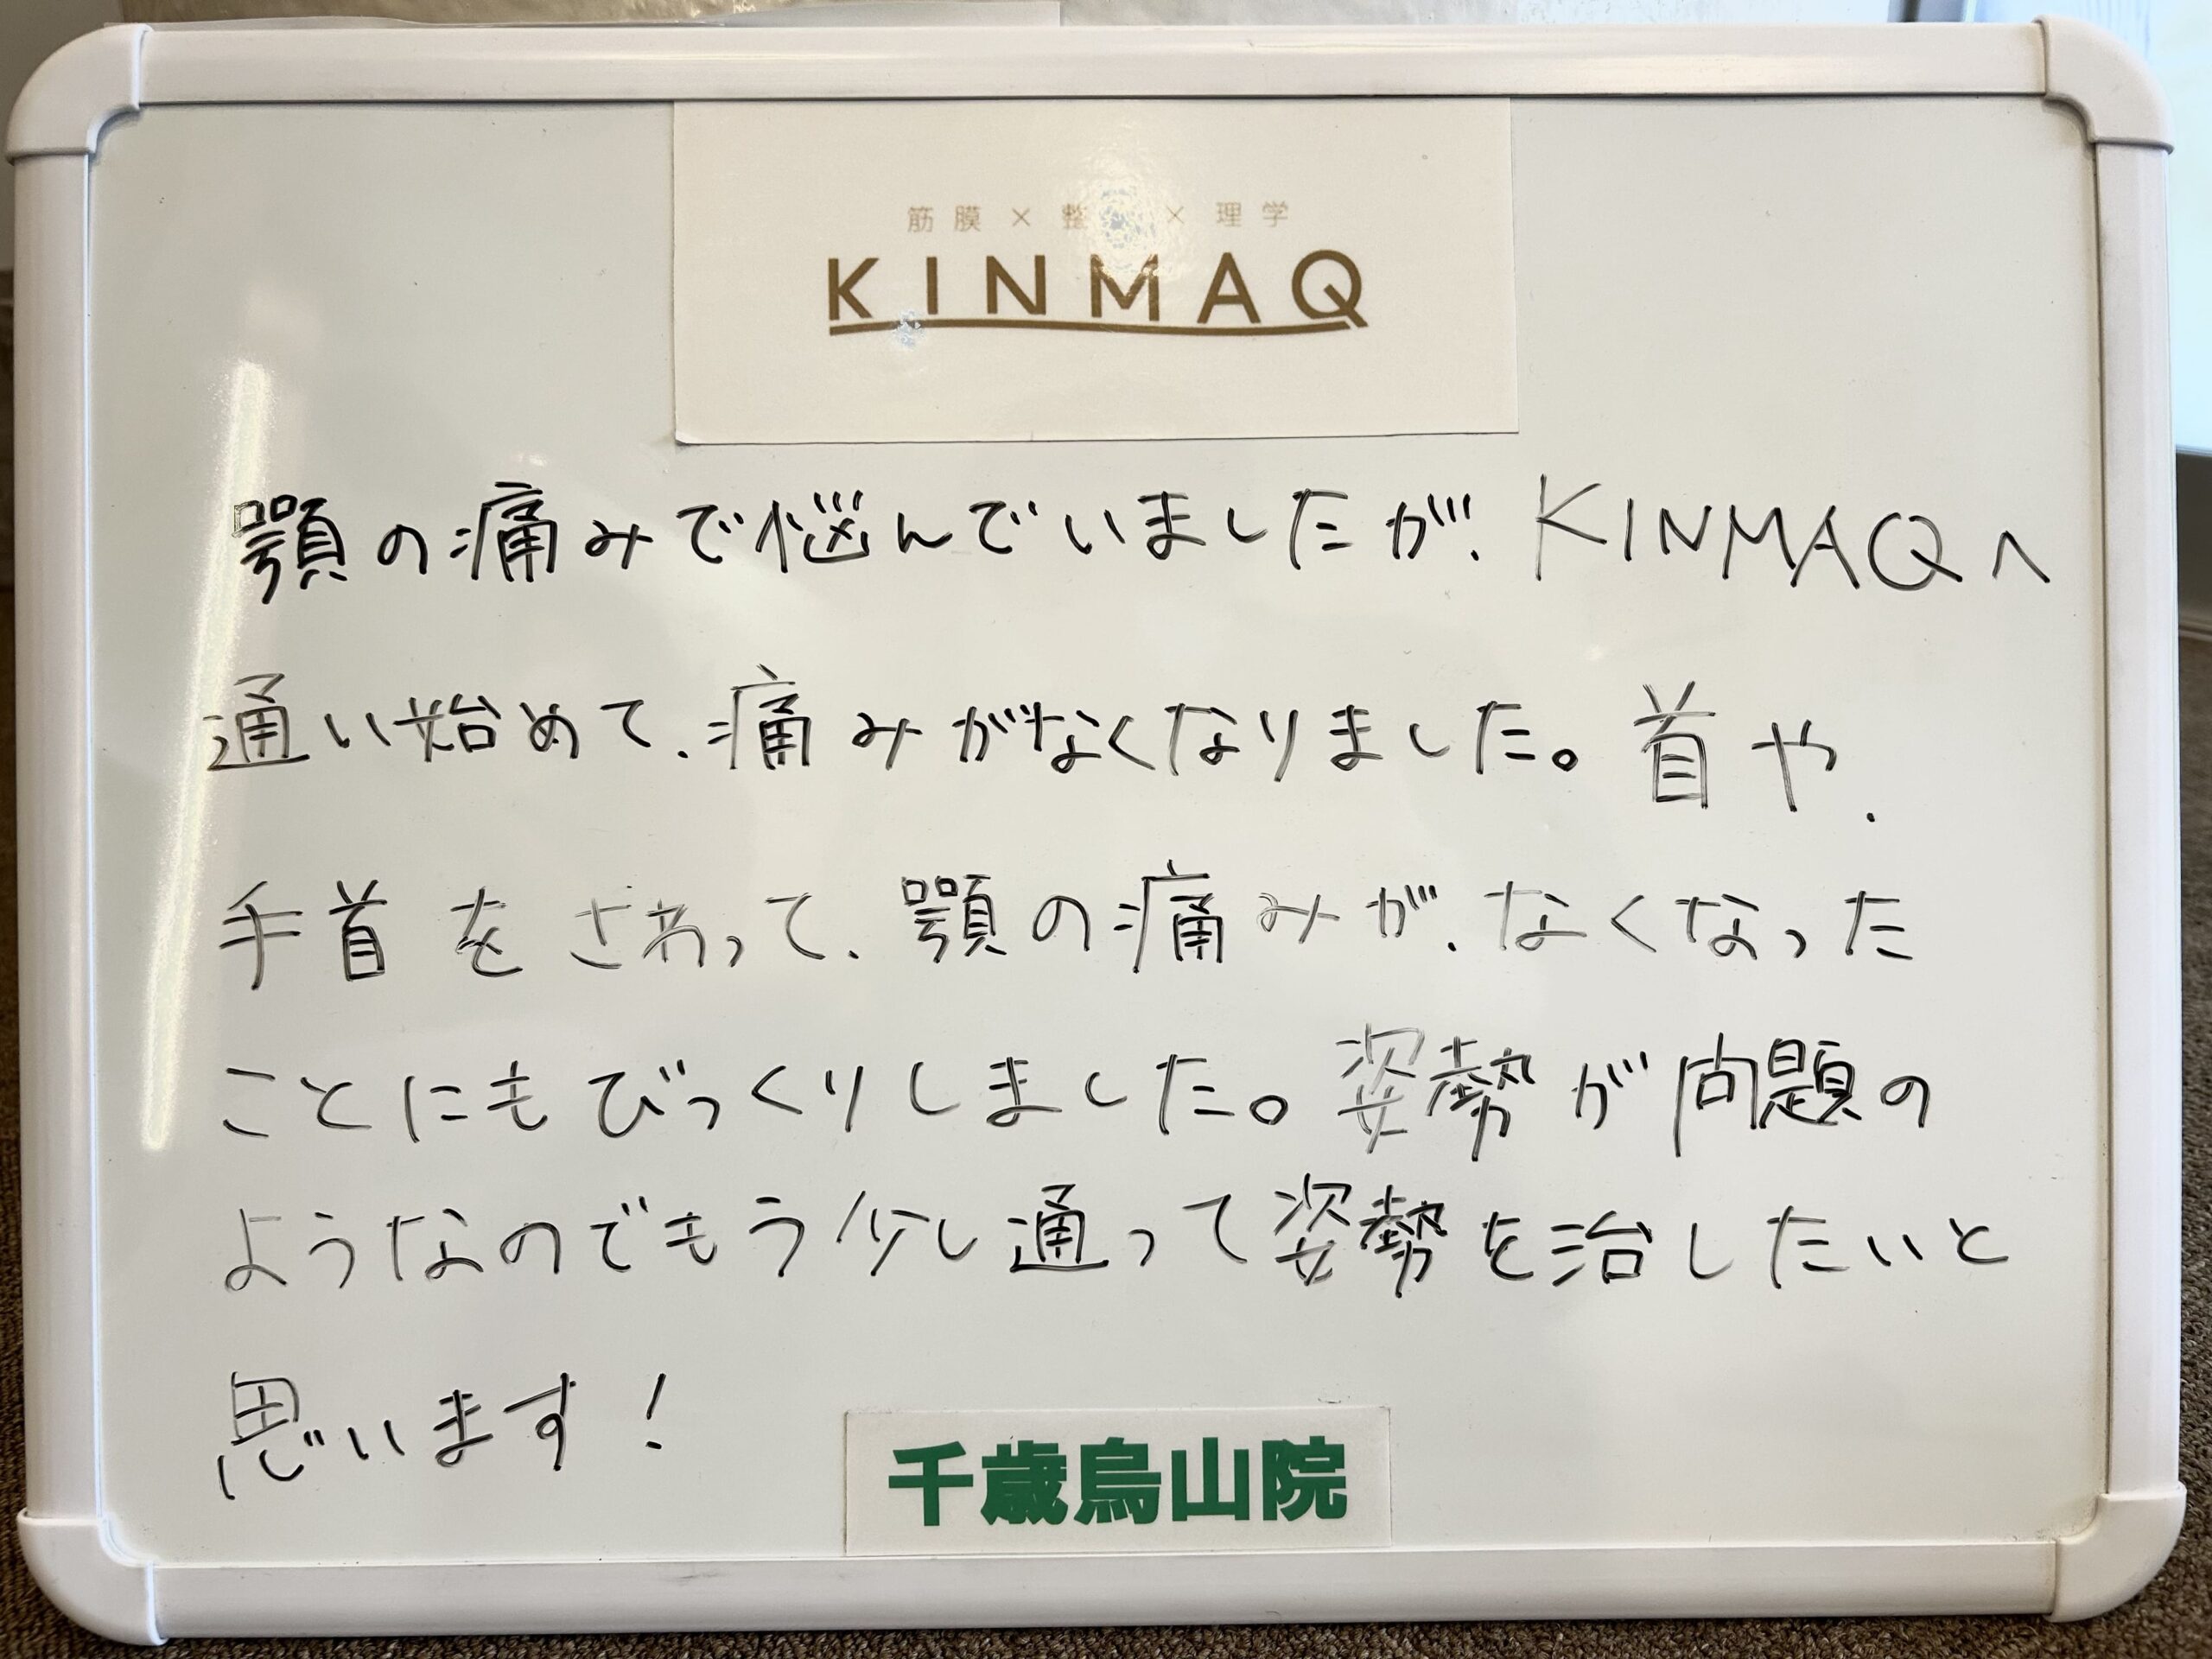 筋膜×整 ×理学
KINMAQ
顎の痛みで悩んでいましたが、KINMAQへ
通い始めて、痛みがなくなりました。首や、
手首をさわって、顎の痛みが、なくなった
ことにもびっくりしました。姿勢が問題の
ようなのでもう少し通って姿勢を治したいと
思います!
千歳烏山院